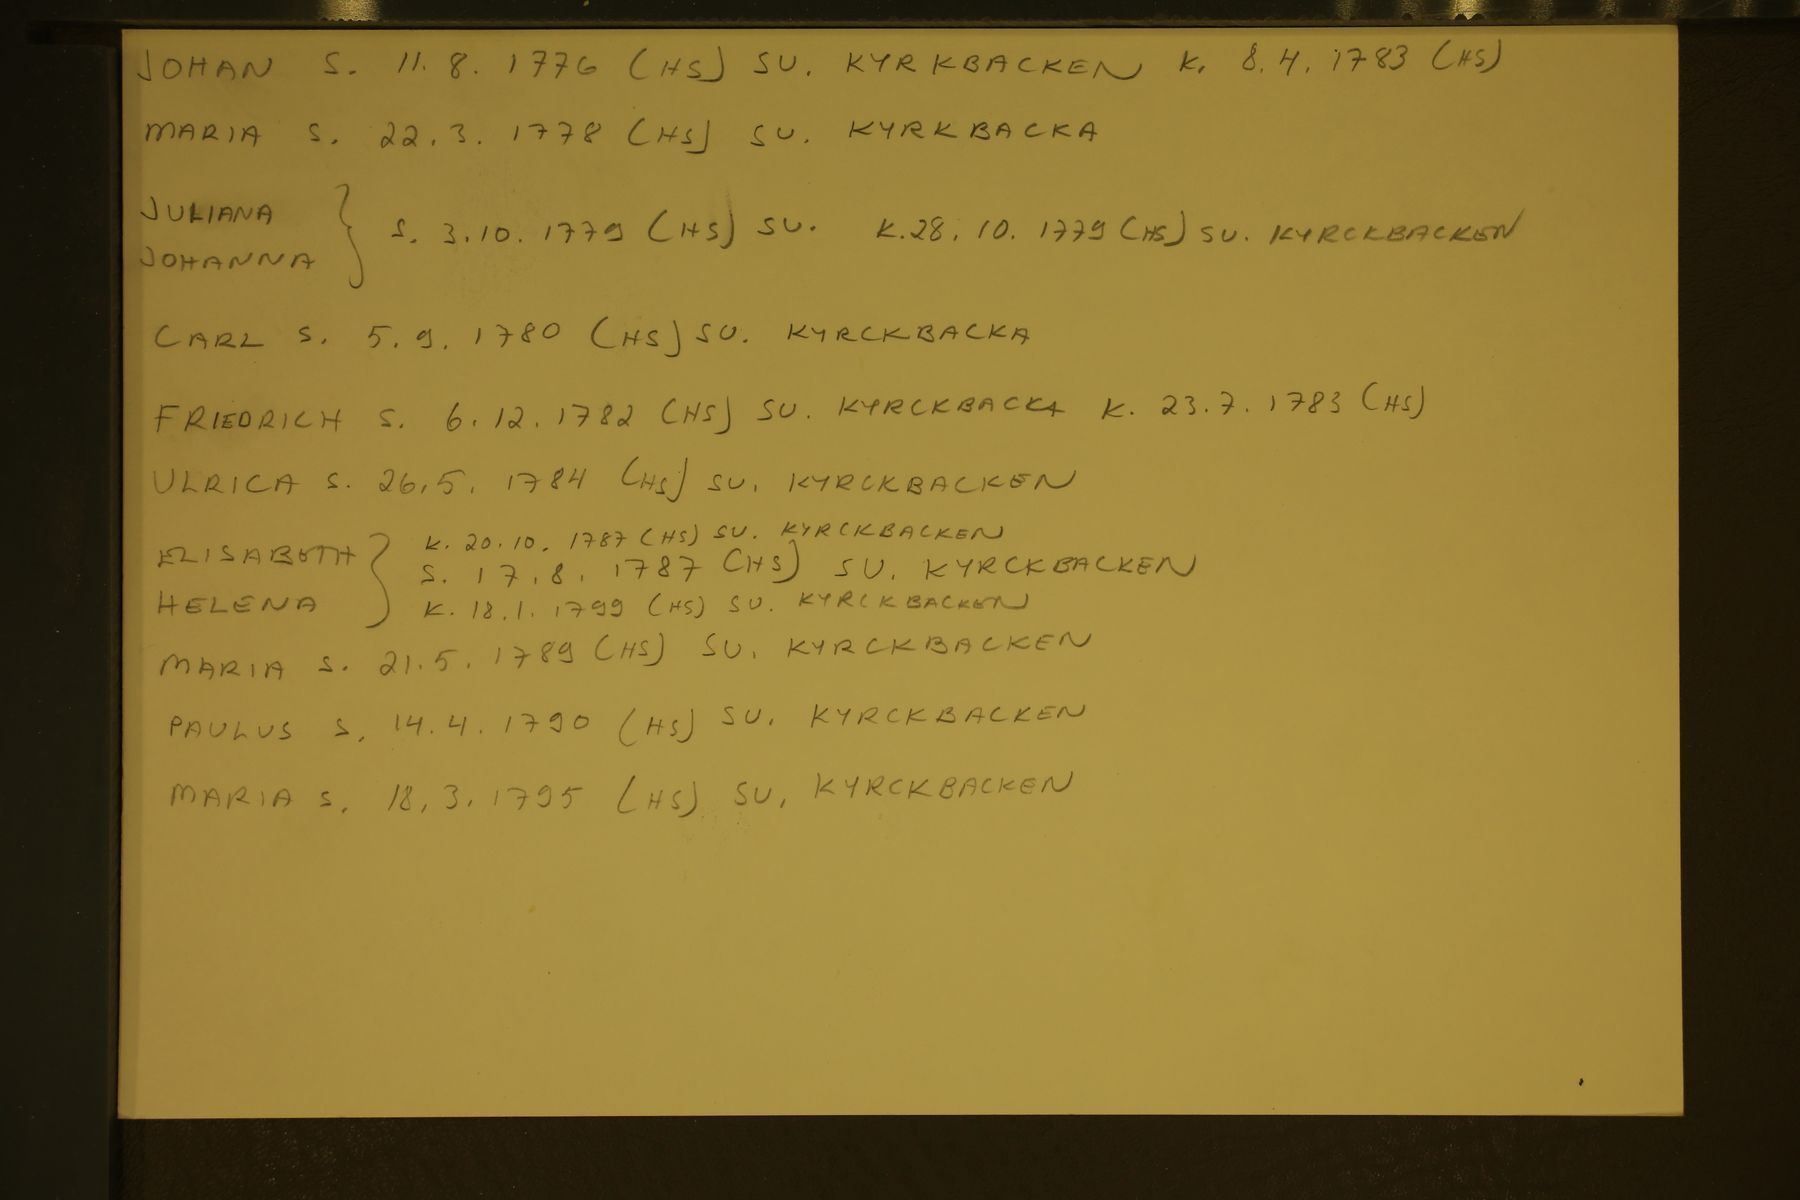 JOHAN S. 11.8. 1776 (HS) SU. KYRKBACKEN K. 8.4.1783 (HS)
MARIA S. 22.3. 1778 (HS) SU. KYRKBACKA
JULIANA
JOHANNA
S. 3.10. 1779 (HS) SU. K.28.10. 1779 (HS) SU. KYRCKBACKEN
CARL S. 5.9. 1780 (HS) SU. KYRCKBACKA
FRIEDRICH S. 6.12.1782 (HS) SU. KYRCKBACKA K. 23.7.1783 (HS)
ULRICA S. 26.5. 1784 (HS) SU. KYRCKBACKEN
ELISABETH
HELENA
K. 20.10. 1787 (HS) SU. KYRCKBACKEN
S. 17.8. 1787 (HS) SU. KYRCKBACKEN
K. 18.1. 1799 (HS) SU. KYRCKBACKEN
MARIA S. 21.5. 1789 (HS) SU. KYRCKBACKEN
PAULUS S. 14.4. 1790 (HS) SU. KYRCKBACKEN
MARIA S. 18.3.1795 (HS) SU. KYRCKBACKEN